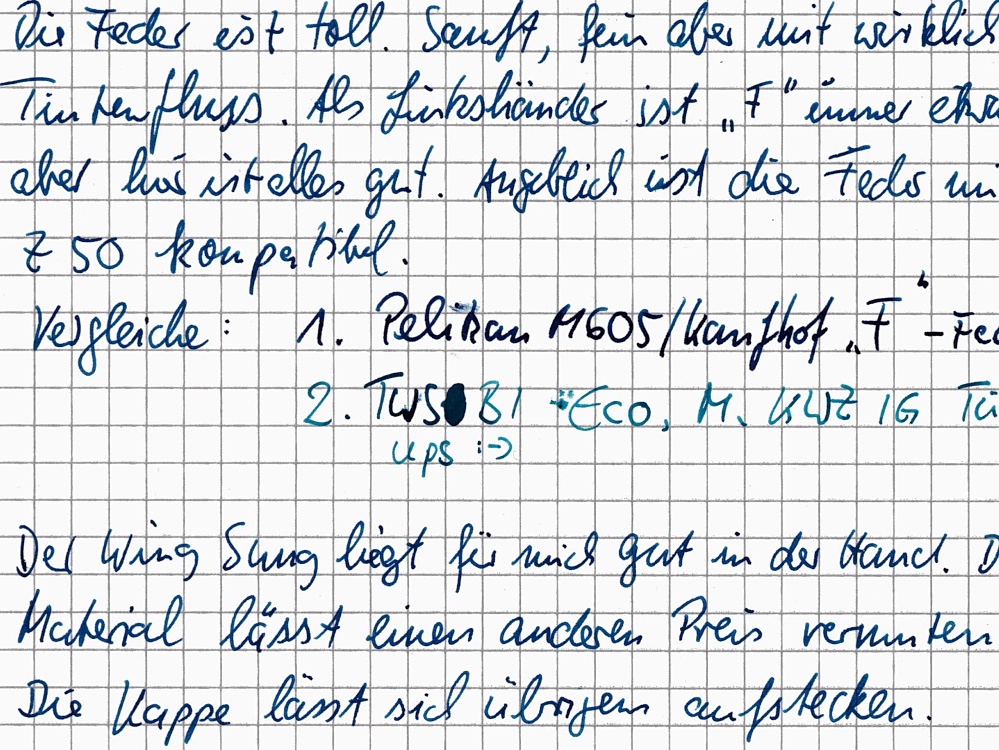 Die Feder ist toll. Sanft, fein aber mit wirklich
Tintenfluss. Als Linkshänder ist „F“ immer etwa
aber hier ist alles gut. Angeblich ist die Feder mi
Z 50 kompatibel.
Vergleiche: 1. Pelikan M605/Kaufhof „F“-Fed
2. TWSBI Eco, M. KWZ IG Tü
ups :->
Der Wing Sung liegt für mich gut in der Hand. D
Material lässt einen anderen Preis vermuten
Die Kappe lässt sich übrigens aufstecken.